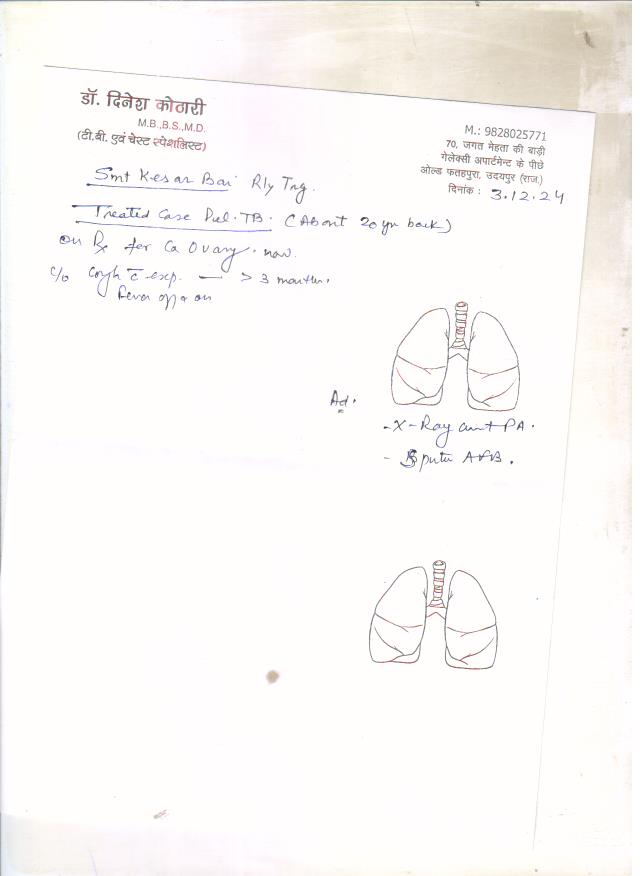 डॉ. दिनेश कोठारी
M.B.,B.S.,M.D.
(टी.बी. एवं चेस्ट स्पेशलिस्ट)
M.: 9828025771
70, जगत मेहता की बाड़ी
गेलेक्सी अपार्टमेन्ट के पीछे
ओल्ड फतहपुरा, उदयपुर (राज.)
दिनांक : 3.12.24
Smt Kesar Bai Rly Tng.
Treated Case Pul. TB. (About 20 yr back)
on Rx for Ca Ovary. now.
c/o Cough c̄ exp. — > 3 months.
fever off & on
Ad.
-X-Ray chest PA.
- Sputum AFB.